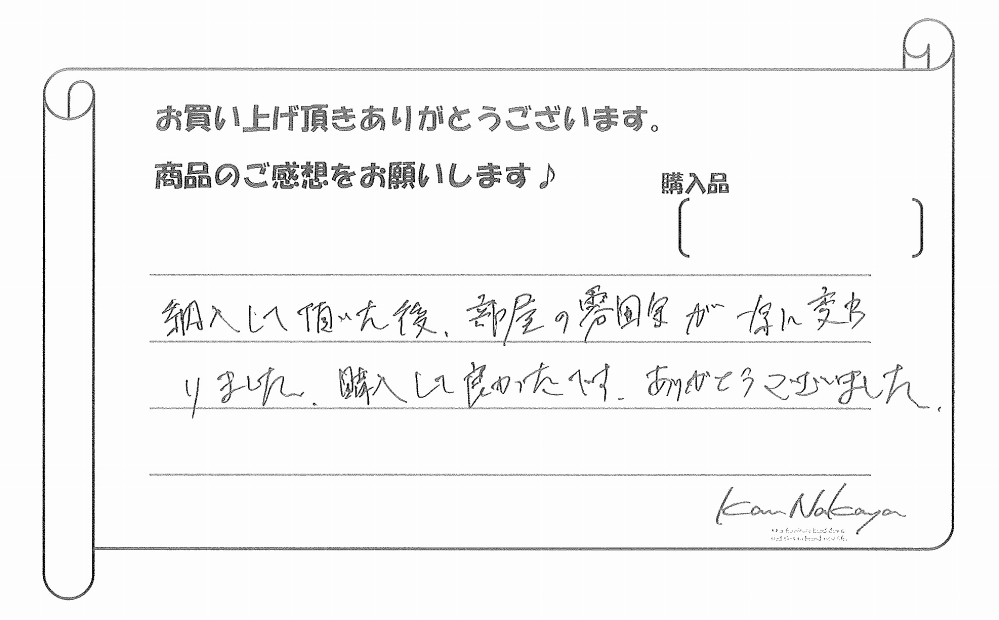 お買い上げ頂きありがとうございます。
商品のご感想をお願いします♪
購入品
納入して頂いた後、部屋の雰囲気が一気に変わ
りました。購入して良かったです。ありがとうございました。
Kan Nakaya